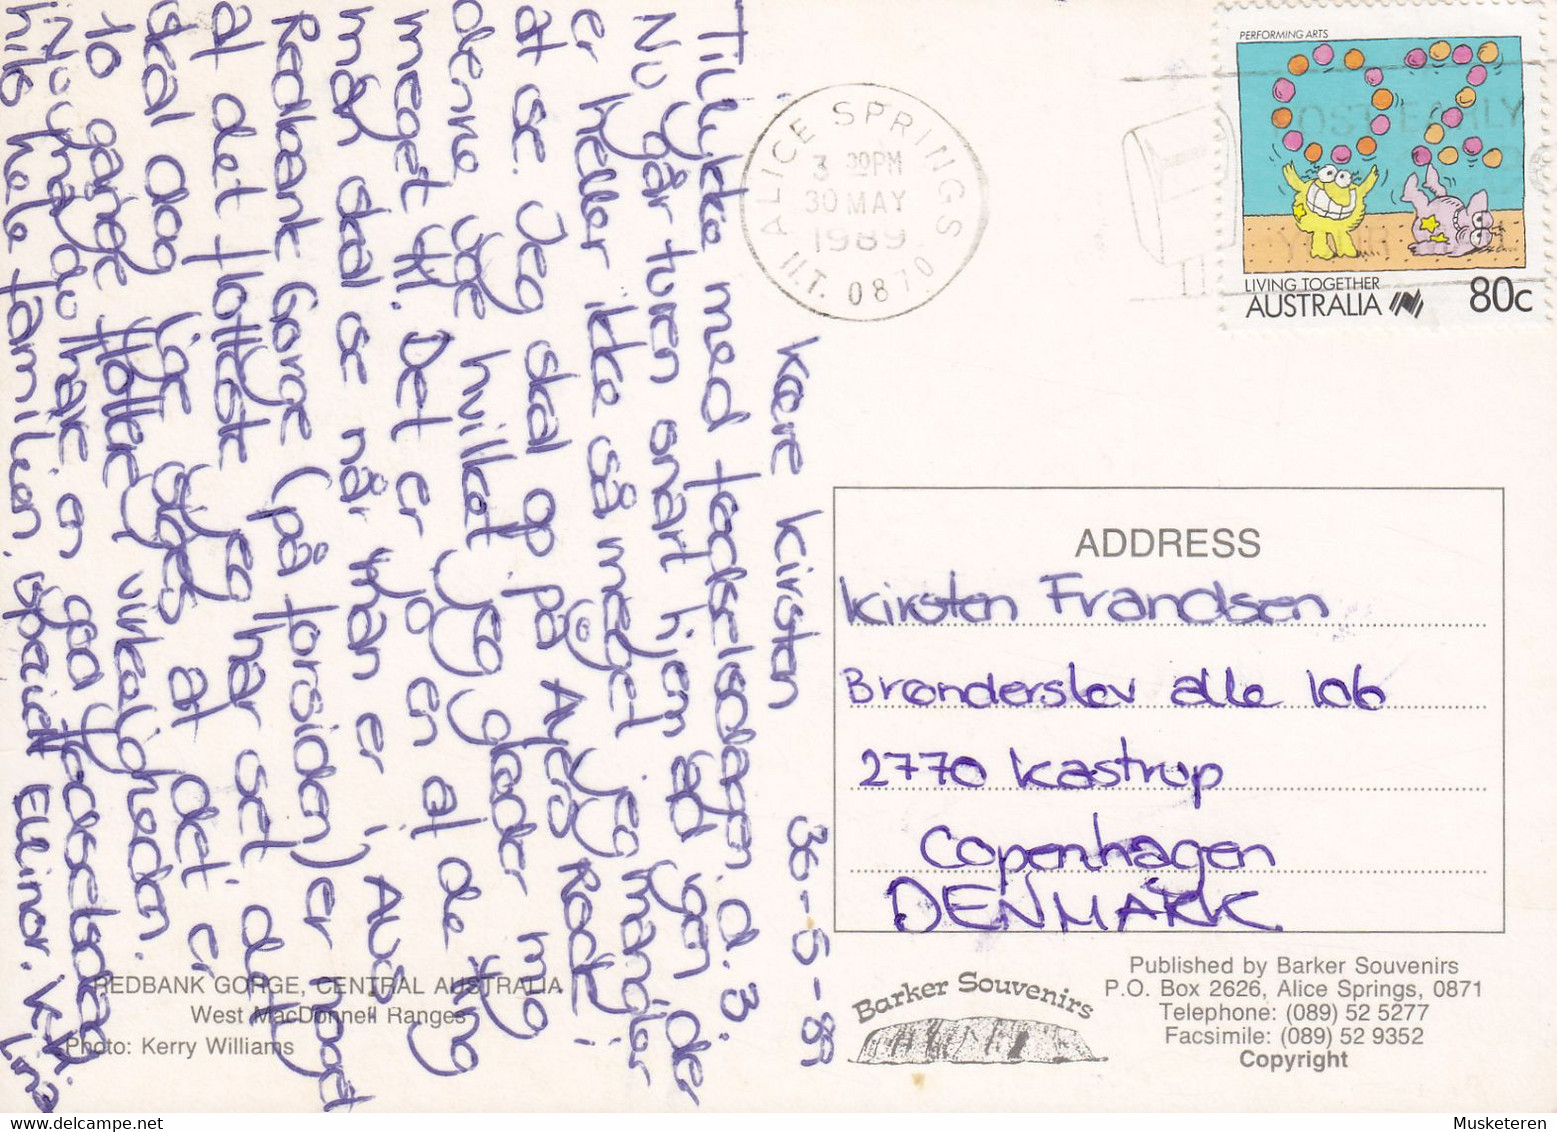 PERFORMING ARTS
LIVING TOGETHER
AUSTRALIA 80c
ALICE SPRINGS
3 PM
30 MAY
1989
NT. 0870
POST EARLY
ADDRESS
Kirsten Frandsen
Brønderslev alle 106
2770 Kastrup
Copenhagen
DENMARK
Barker Souvenirs
Published by Barker Souvenirs
P.O. Box 2626, Alice Springs, 0871
Telephone: (089) 52 5277
Facsimile: (089) 52 9352
Copyright
30-5-89
Kære Kirsten
Tillykke med fødselsdagen d. 3.
Nu går turen snart hjem ad og de
er heller ikke så meget jeg mangler
at se. Jeg skal op på Ayers Rock i
denne uge hvilket jeg glæder mig
meget til. Det er jo en at de ting
man skal se når man er i Aus.
Redbank Gorge (på forsiden) er noget
at det flotteste jeg har set og det
skal dog lige siges at det er
10 gange flottere i virkeligheden.
Nu må du have en god fødselsdag
hils hele familien specielt Ellinor. K.H. Lina
REDBANK GORGE, CENTRAL AUSTRALIA
West MacDonnell Ranges
Photo: Kerry Williams
Musketeren